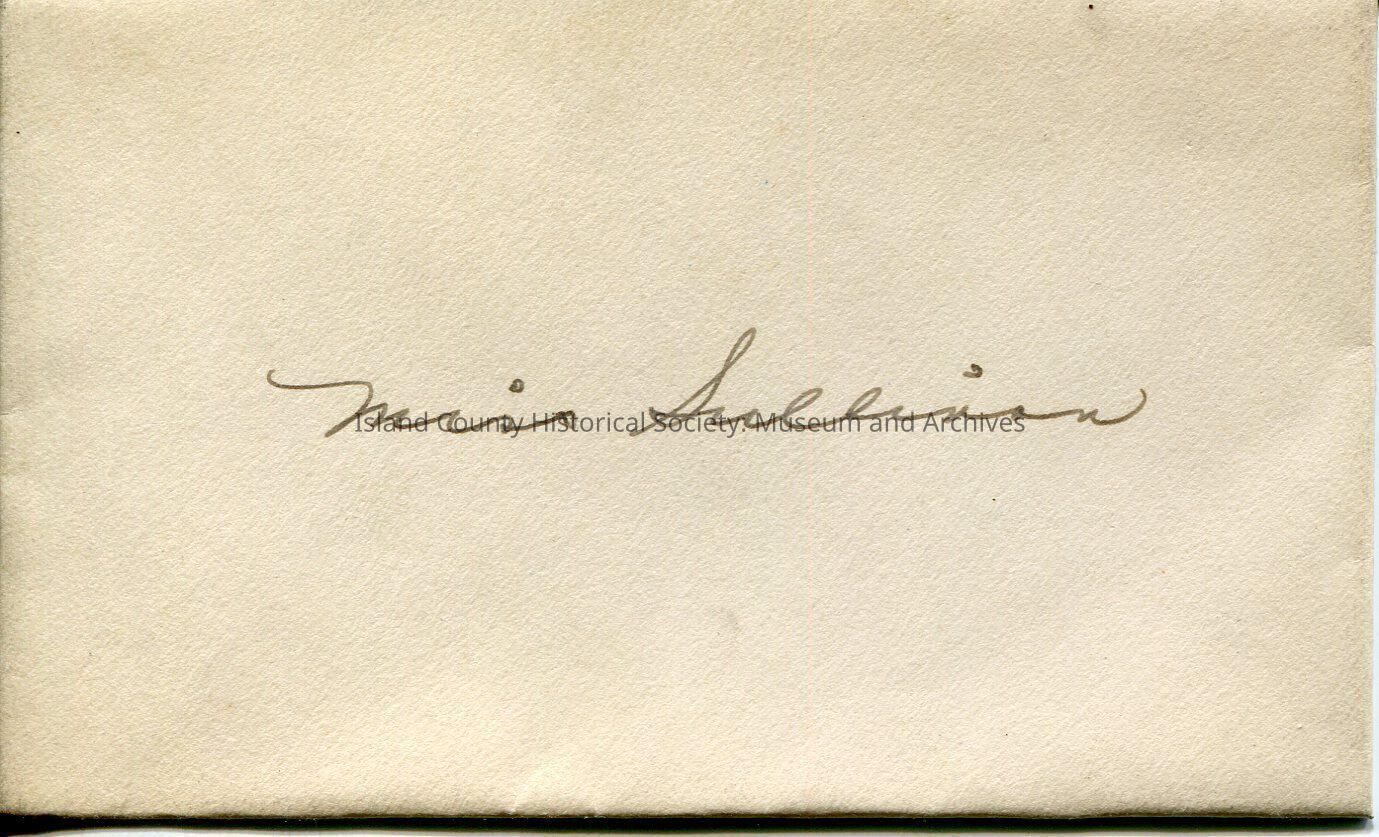 Maia Sullivan
Island County Historical Society: Museum and Archives